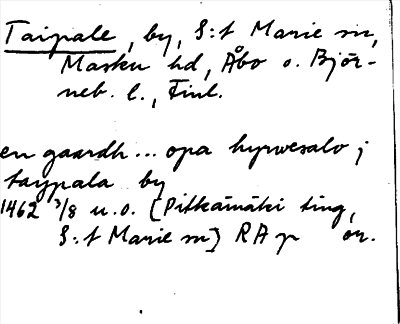 Taipale, by, S:t Marie sn,
Masku hd, Åbo o. Björ-
neb. l., Finl.
en gaardh... opa hyrwesalo j
taypala by
1462 3/8 u.o. [Pitkämäki ting,
S:t Marie sn] RA p or.